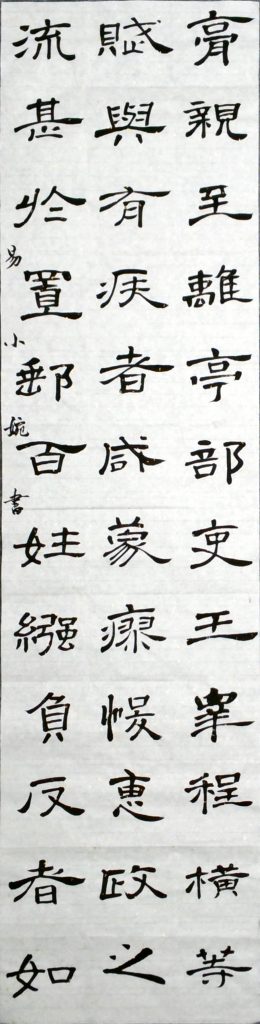 膏親至離亭部吏王睪程橫等
賦與有疾者咸蒙瘳悛惠政之
流甚於置郵百姓繈負反者如
易小婉書